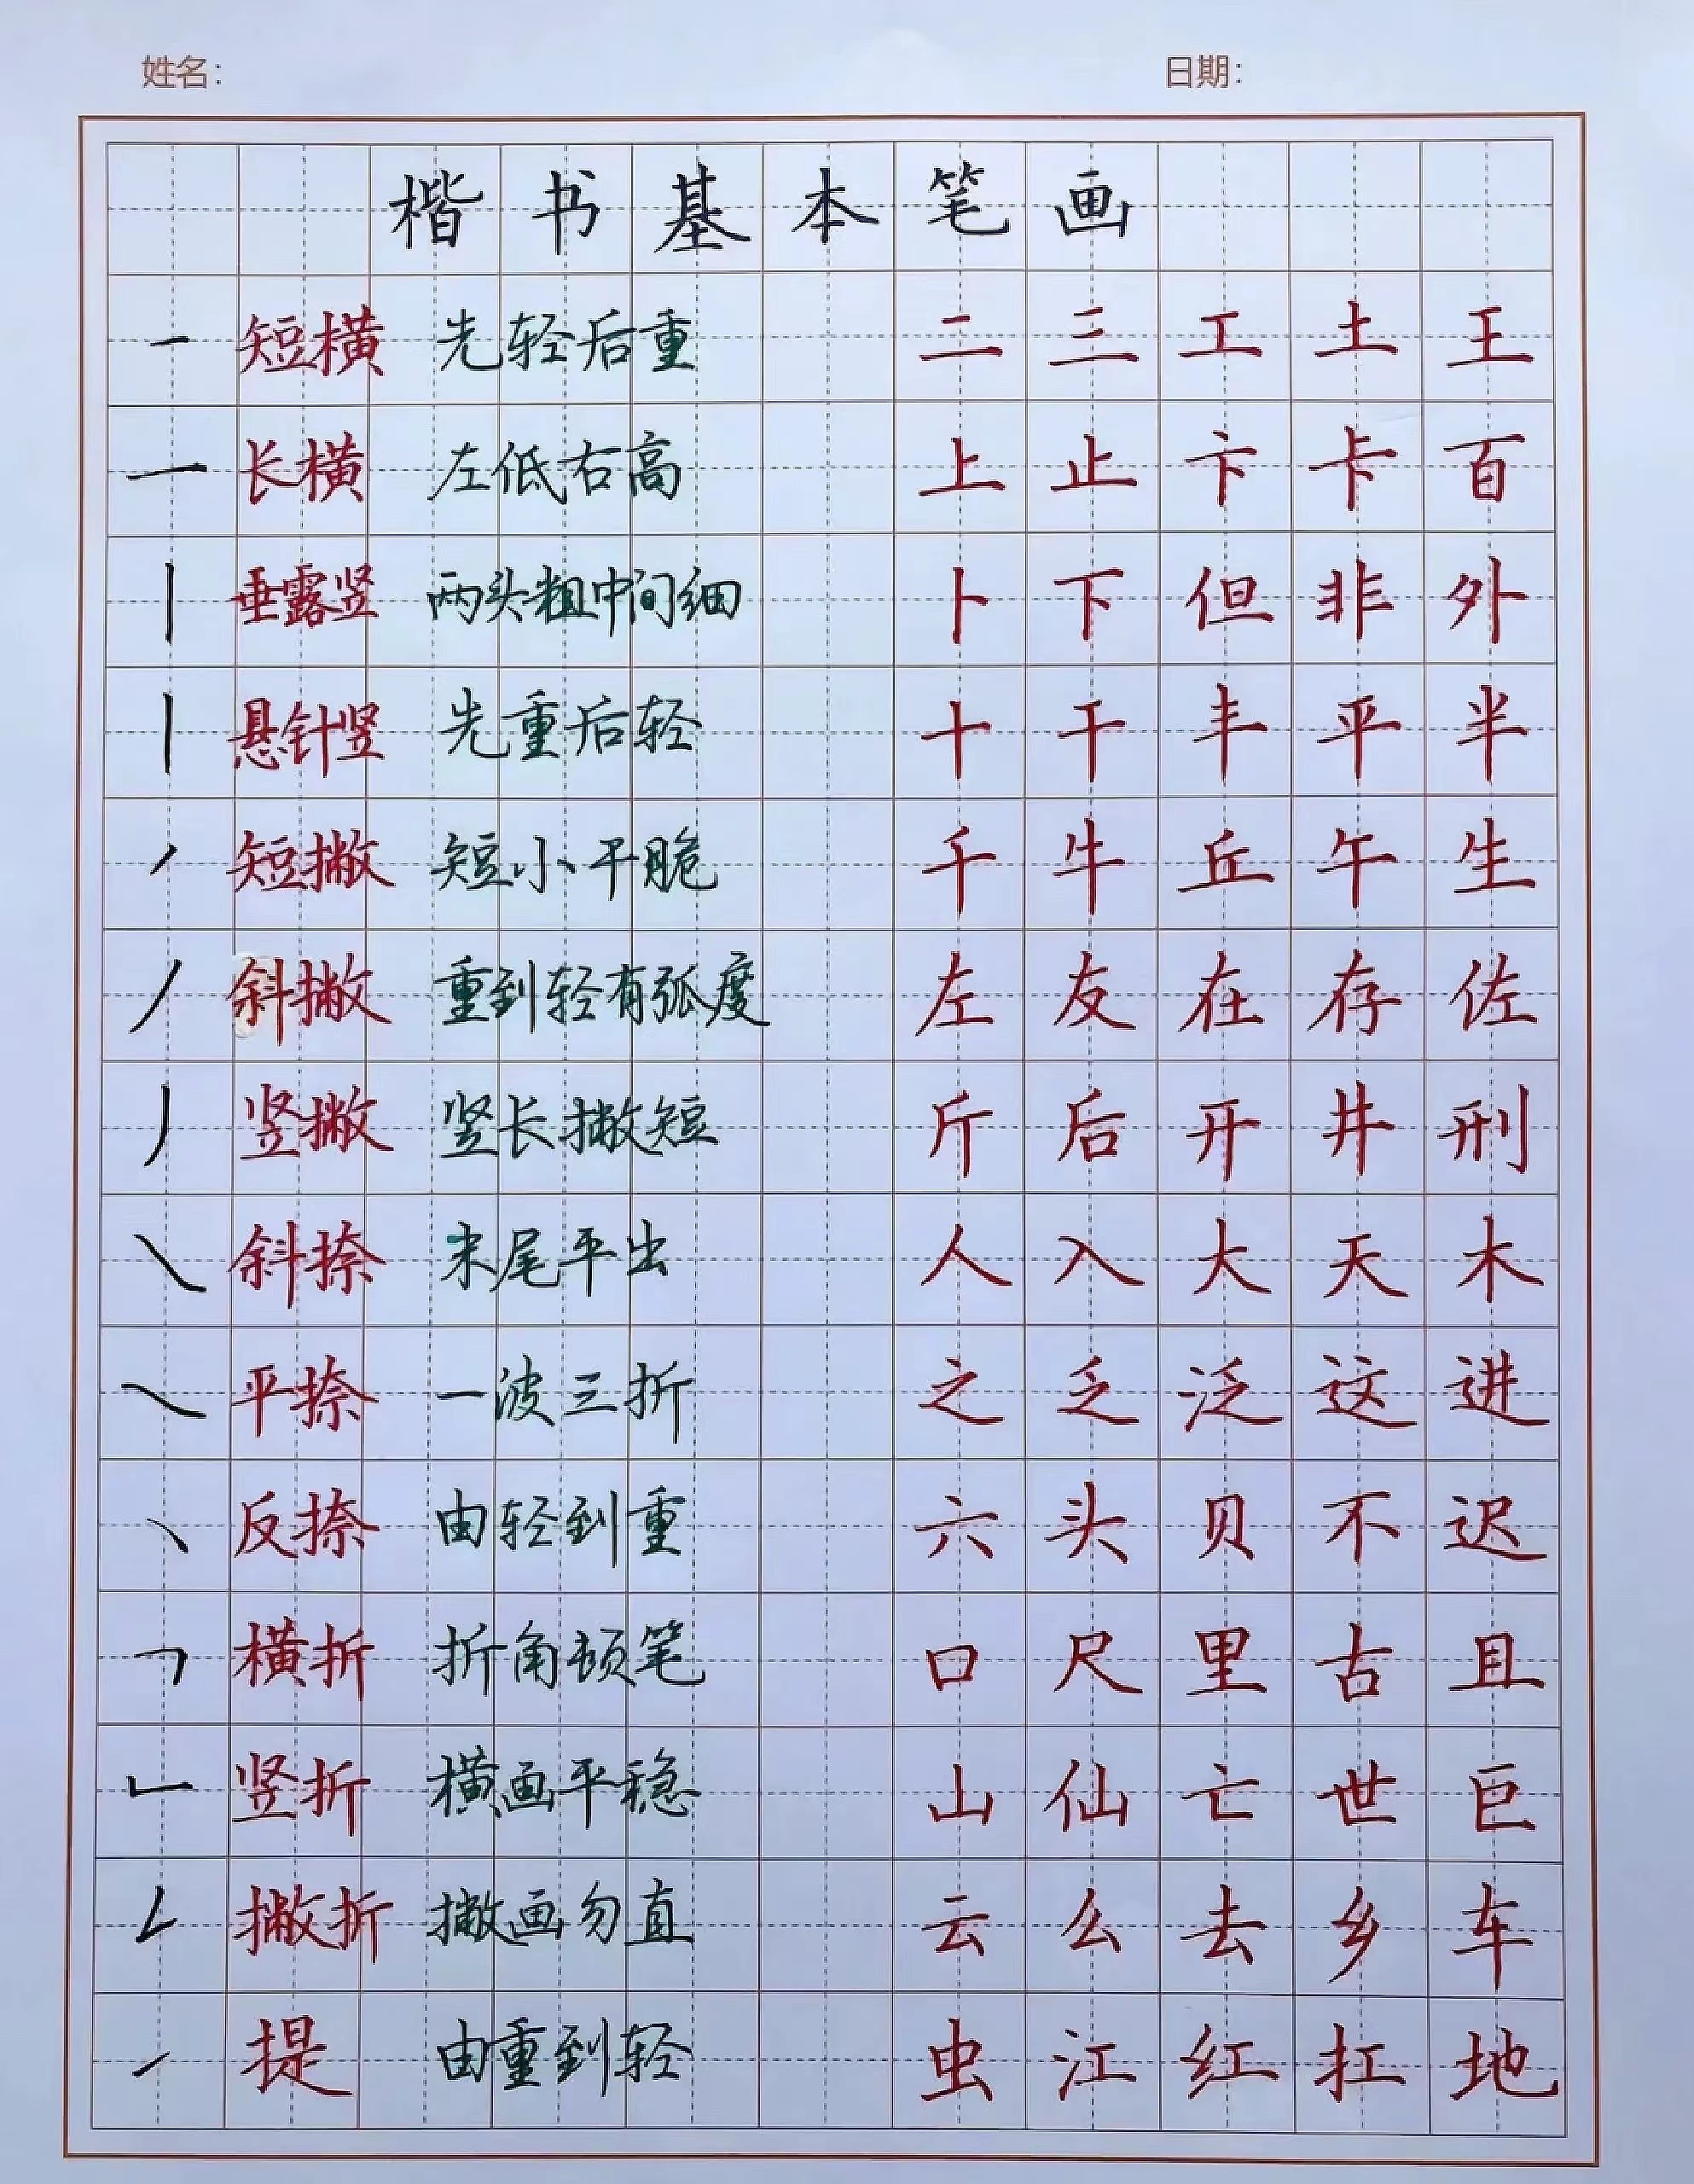 姓名： 日期：
楷书基本笔画
一 短横 先轻后重 二 三 工 土 王
一 长横 左低右高 上 止 卞 卡 百
丨 垂露竖 两头粗中间细 卜 下 但 非 外
丨 悬针竖 先重后轻 十 干 丰 平 半
丿 短撇 短小干脆 千 牛 丘 午 生
丿 斜撇 重到轻有弧度 左 友 在 存 佐
丿 竖撇 竖长撇短 斤 后 开 井 刑
㇏ 斜捺 末尾平出 人 入 大 天 木
㇏ 平捺 一波三折 之 乏 泛 这 进
丶 反捺 由轻到重 六 头 贝 不 迟
𠃍 横折 折角顿笔 口 尺 里 古 且
𠃊 竖折 横画平稳 山 仙 亡 世 巨
𠃋 撇折 撇画勿直 云 么 去 乡 车
㇀ 提 由重到轻 虫 江 红 扛 地